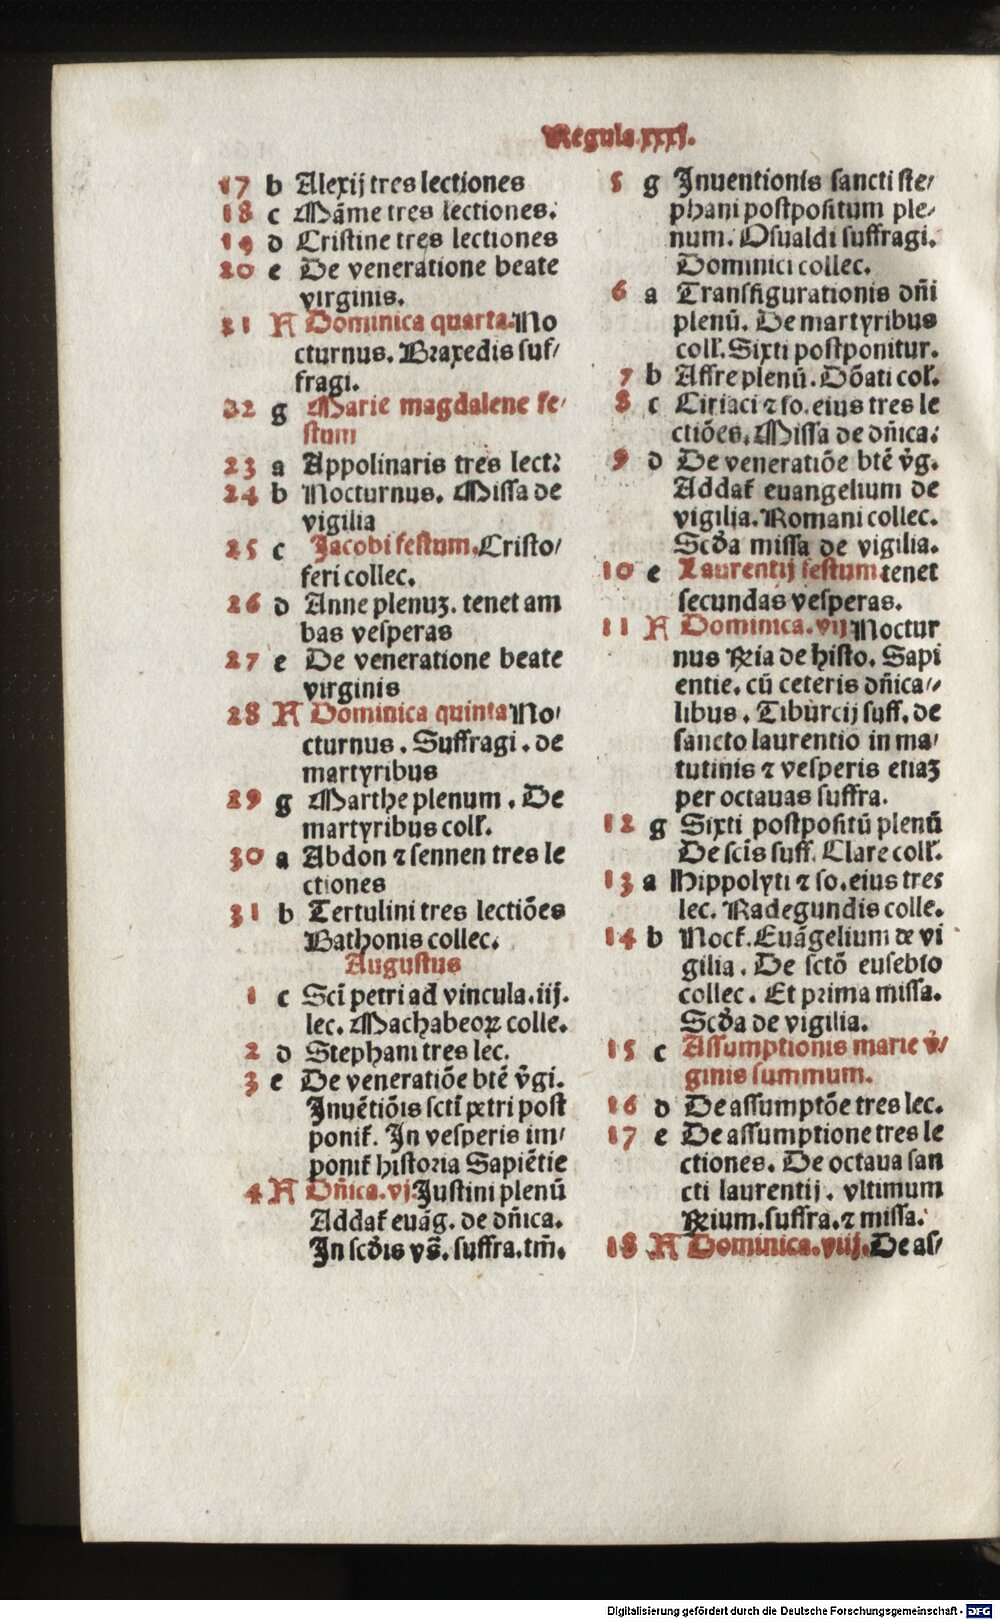 Regula.xxxj.
17 b Alexij tres lectiones
18 c Mãme tres lectiones.
19 d Cristine tres lectiones
20 e De veneratione beate
virginis.
21 A Dominica quarta. No
cturnus. Braxedis suf⸗
fragi.
22 g Marie magdalene fe⸗
stum
23 a Appolinaris tres lect:
24 b Nocturnus. Missa de
vigilia
25 c Jacobi festum. Cristo⸗
feri collec.
26 d Anne plenuʒ. tenet am
bas vesperas
27 e De veneratione beate
virginis
28 A Dominica quinta No⸗
cturnus. Suffragi. de
martyribus
29 g Marthe plenum. De
martyribus coll'.
30 a Abdon ⁊ sennen tres le
ctiones
31 b Tertulini tres lectiões
Bathonis collec.
Augustus
1 c Scī petri ad vincula. iij.
lec. Machabeoꝝ colle.
2 d Stephani tres lec.
3 e De veneratiõe btē v̄gi.
Inuētiõis sctī petri post
ponit̄. In vesperis im⸗
ponit̄ historia Sapiētie
4 A Dñica. vj. Justini plenū
Addat̄ euāg. de dñica.
In scđis vs̄. suffra. tm̄.
5 g Inuentionis sancti ste⸗
phani postpositum ple⸗
num. Osualdi suffragi.
Dominici collec.
6 a Transfigurationis dñi
plenū. De martyribus
coll'. Sixti postponitur.
7 b Affre plenū. Dõati col'.
8 c Ciriaci ⁊ so. eius tres le
ctiões. Missa de dñica.
9 d De veneratiõe btē v̄g.
Addat̄ euangelium de
vigilia. Romani collec.
Scđa missa de vigilia.
10 e Laurentij festum tenet
secundas vesperas.
11 A Dominica. vij. Noctur
nus ℟ia de histo. Sapi
entie. cū ceteris dñica⸗
libus. Tiburcij suff. de
sancto laurentio in ma⸗
tutinis ⁊ vesperis etiaʒ
per octauas suffra.
12 g Sixti postpositū plenū
De scīs suff. Clare coll'.
13 a Hippolyti ⁊ so. eius tres
lec. Radegundis colle.
14 b Noct̄. Euāgelium de vi
gilia. De sctõ eusebio
collec. Et prima missa.
Scđa de vigilia.
15 c Assumptionis marie v̄⸗
ginis summum.
16 d De assumptõe tres lec.
17 e De assumptione tres le
ctiones. De octaua san
cti laurentij. vltimum
℟ium. suffra. ⁊ missa.
18 A Dominica. viij. De as⸗
Digitalisierung gefördert durch die Deutsche Forschungsgemeinschaft - DFG